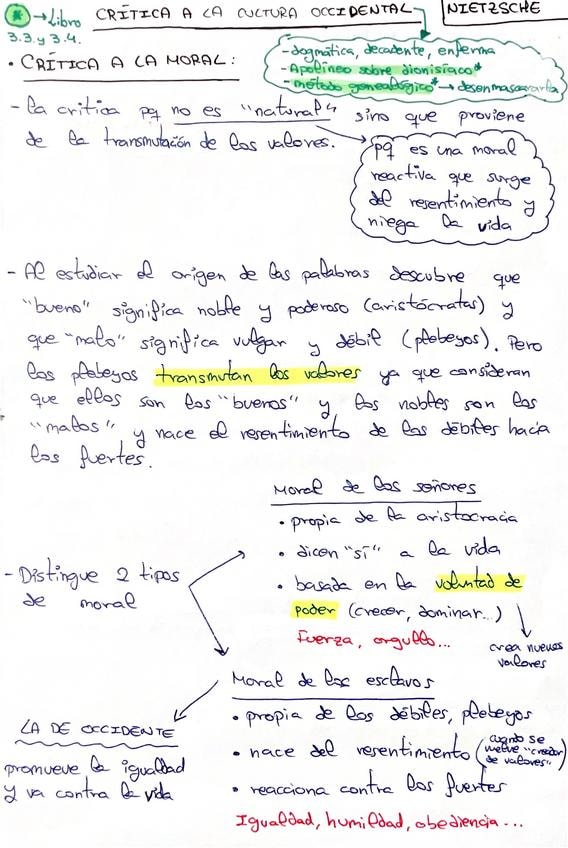 * → Libro
3.3. y 3.4.
CRÍTICA A LA CULTURA OCCIDENTAL
NIETZSCHE
- dogmática, decadente, enferma
- Apolíneo sobre dionisíaco*
- método genealógico* → desenmascararla
• CRÍTICA A LA MORAL:
- La critica pq no es "natural", sino que proviene
de la transmutación de los valores.
pq es una moral
reactiva que surge
del resentimiento y
niega la vida
- Al estudiar el origen de las palabras descubre que
"bueno" significa noble y poderoso (aristócratas) y
que "malo" significa vulgar y débil (plebeyos). Pero
los plebeyos transmutan los valores ya que consideran
que ellos son los "buenos" y los nobles son los
"malos" y nace el resentimiento de los débiles hacia
los fuertes.
- Distingue 2 tipos
de moral
Moral de los señores
• propia de la aristocracia
• dicen "sí" a la vida
• basada en la voluntad de
poder (crecer, dominar...)
Fuerza, orgullo...
crea nuevos
valores
Moral de los esclavos
• propia de los débiles, plebeyos
• nace del resentimiento (cuando se
vuelve "creador
de valores")
• reacciona contra los fuertes
Igualdad, humildad, obediencia...
LA DE OCCIDENTE
promueve la igualdad
y va contra la vida